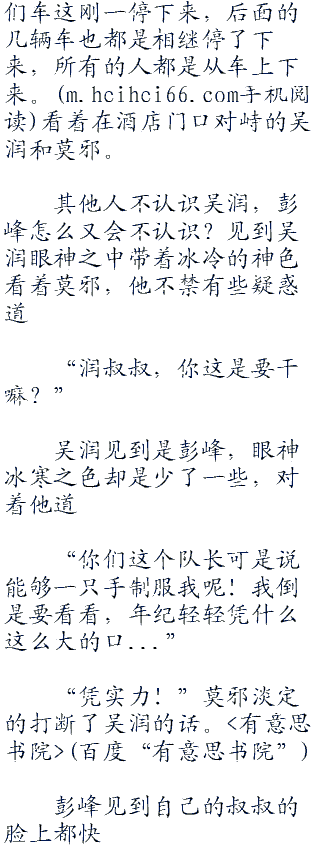 们车这刚一停下来，后面的
几辆车也都是相继停了下
来，所有的人都是从车上下
来。(m.hcihci66.com手机阅
读)看着在酒店门口对峙的吴
润和莫邪。
其他人不认识吴润，彭
峰怎么又会不认识？见到吴
润眼神之中带着冰冷的神色
看着莫邪，他不禁有些疑惑
道
“润叔叔，你这是要干
嘛？”
吴润见到是彭峰，眼神
冰寒之色却是少了一些，对
着他道
“你们这个队长可是说
能够一只手制服我呢！我倒
是要看看，年纪轻轻凭什么
这么大的口...”
“凭实力！”莫邪淡定
的打断了吴润的话。<有意思
书院>(百度“有意思书院”)
彭峰见到自己的叔叔的
脸上都快